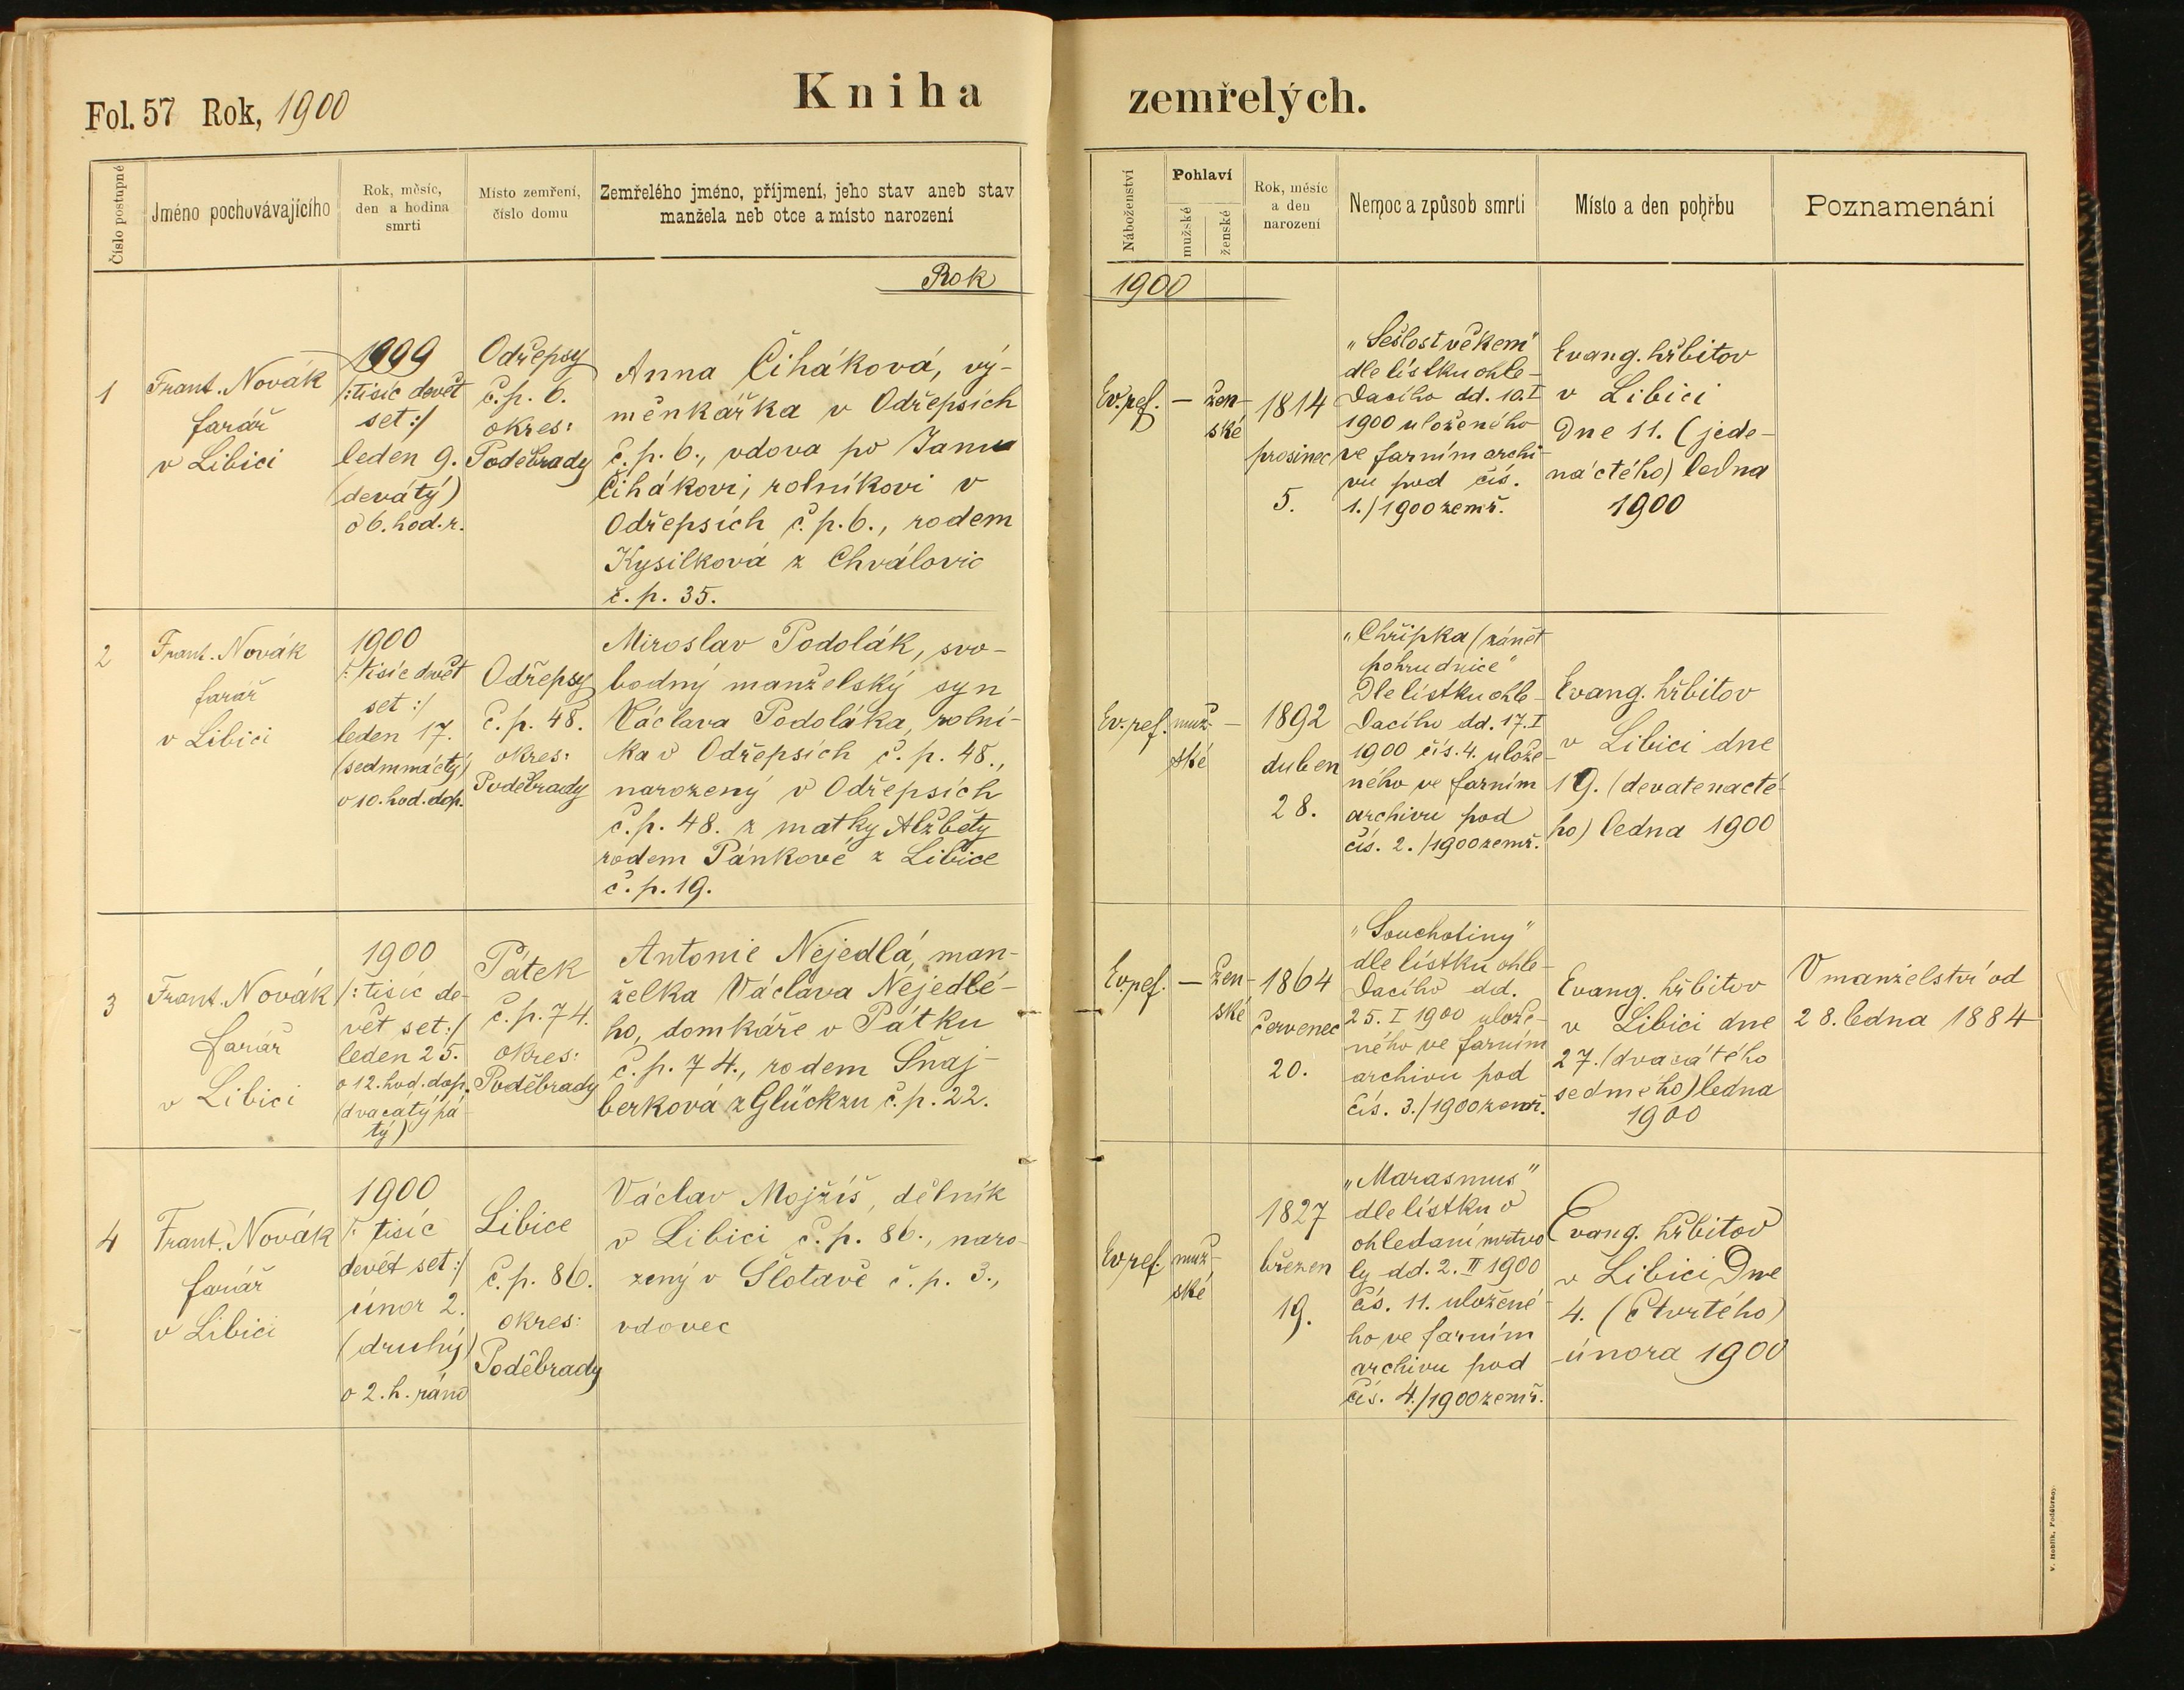 Fol. 57 Rok, 1900
Kniha zemřelých.
Číslo postupné
Jméno pochovávajícího
Rok, měsíc,
den a hodina
smrti
Místo zemření,
číslo domu
Zemřelého jméno, příjmení, jeho stav aneb stav
manžela neb otce a místo narození
Náboženství
Pohlaví
mužské
ženské
Rok, měsíc
a den
narození
Nemoc a způsob smrti
Místo a den pohřbu
Poznamenání
Rok 1900
1
Frant. Novák
farář
v Libici
/:tisíc devět
set:/
leden 9.
(devátý)
o 6. hod. r.
Odřepsy
č. p. 6.
okres:
Poděbrady
Anna Čiháková, vý-
měnkářka v Odřepsích
č. p. 6., vdova po Janu
Čihákovi, rolníkovi v
Odřepsích č. p. 6., rodem
Kysilková z Chválovic
č. p. 35.
Ev. ref.
—
žen-
ské
1814
prosinec
5.
„Sešlost věkem"
dle lístku ohle-
dacího dd. 10. I
1900 uloženého
ve farním archi-
vu pod čís.
1./1900 zemř.
Evang. hřbitov
v Libici
Dne 11. (jede-
náctého) ledna
1900
2
Frant. Novák
farář
v Libici
1900
/:tisíc devět
set:/
leden 17.
(sedmnáctý)
o 10. hod. dop.
Odřepsy
č. p. 48.
okres:
Poděbrady
Miroslav Podolák, svo-
bodný manželský syn
Václava Podoláka, rolní-
ka v Odřepsích č. p. 48.,
narozený v Odřepsích
č. p. 48. z matky Alžběty
rodem Pánkové z Libice
č. p. 19.
Ev. ref.
muž-
ské
—
1892
duben
28.
„Chřipka (zánět
pohrudnice"
Dle lístku ohle-
dacího dd. 17. I
1900 čís. 4. ulože-
ného ve farním
archivu pod
čís. 2./1900 zemř.
Evang. hřbitov
v Libici dne
19. (devatenácté-
ho) ledna 1900
3
Frant. Novák
farář
v Libici
1900
/:tisíc de-
vět set:/
leden 25.
o 12. hod. dop.
(dvacátý pá-
tý)
Pátek
č. p. 74.
okres:
Poděbrady
Antonie Nejedlá, man-
želka Václava Nejedlé-
ho, domkáře v Pátku
č. p. 74., rodem Šnaj-
berková z Glückzu č. p. 22.
Ev. ref.
—
žen-
ské
1864
červenec
20.
„Souchotiny"
dle lístku ohle-
dacího dd.
25. I 1900 ulože-
ného ve farním
archivu pod
čís. 3./1900 zemř.
Evang. hřbitov
v Libici dne
27. (dvacátého
sedmého) ledna
1900
V manželství od
28. ledna 1884
4
Frant. Novák
farář
v Libici
1900
/: tisíc
devět set:/
únor 2.
(druhý)
o 2. h. ráno
Libice
č. p. 86.
okres:
Poděbrady
Václav Mojžíš, dělník
v Libici č. p. 86., naro-
zený v Šlotavě č. p. 3.,
vdovec
Ev. ref.
muž-
ské
1827
březen
19.
„Marasmus"
dle lístku o
ohledání mrtvo
ly dd. 2. II 1900
čís. 11. uložené-
ho ve farním
archivu pod
čís. 4./1900 zemř.
Evang. hřbitov
v Libici Dne
4. (čtvrtého)
února 1900
V. Hoblík, Poděbrady.